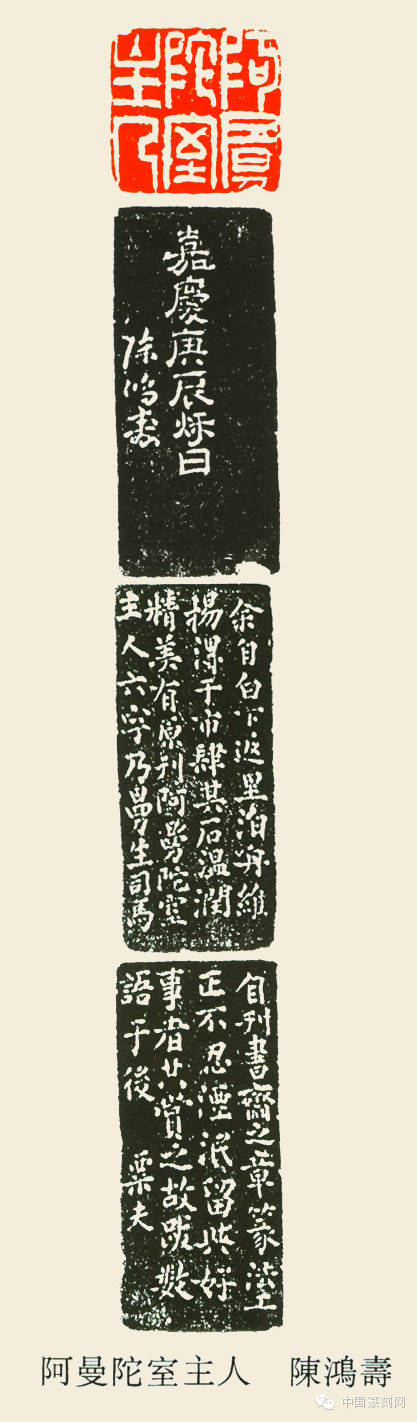 阿曼
陀室
主人
嘉慶庚辰秌日
陳鴻壽
余自白下返里泊舟維
揚淂于市肆其石溫潤
精美有原刊阿曼陀室
主人六字乃曼生司馬
自刊書齋之章篆
正不忍湮泯留此好
事者共賞之故跋数
語于後 粟夫
阿曼陀室主人 陳鴻壽
中国篆刻网